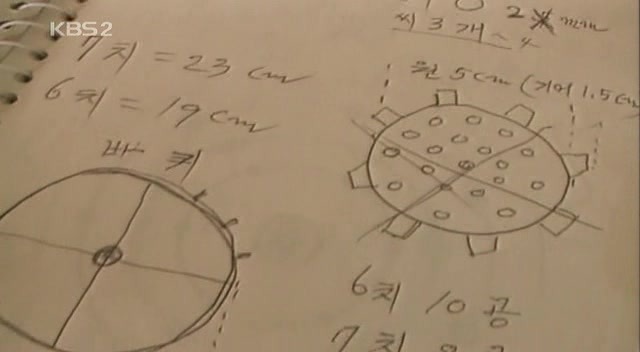 KBS2
2 mm
씨 3 개 ~ 4
7치 = 23 cm
6치 = 19 cm
원 5cm (기어 1.5cm
바퀴
6치 10 공
7치